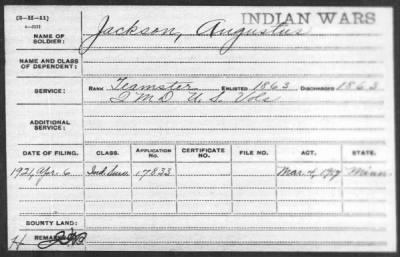 (3-23-11)
INDIAN WARS
NAME OF SOLDIER: Jackson, Augustus
NAME AND CLASS OF DEPENDENT:
SERVICE: RANK Teamster ENLISTED 1863 DISCHARGED 1863
Q M D U. S. Vols
ADDITIONAL SERVICE:
DATE OF FILING. CLASS. APPLICATION NO. CERTIFICATE NO. FILE NO. ACT. STATE.
1921, Apr. 6 Ind. Surv. 17833 Mar. 4, 1917 Minn.
BOUNTY LAND:
REMARKS: